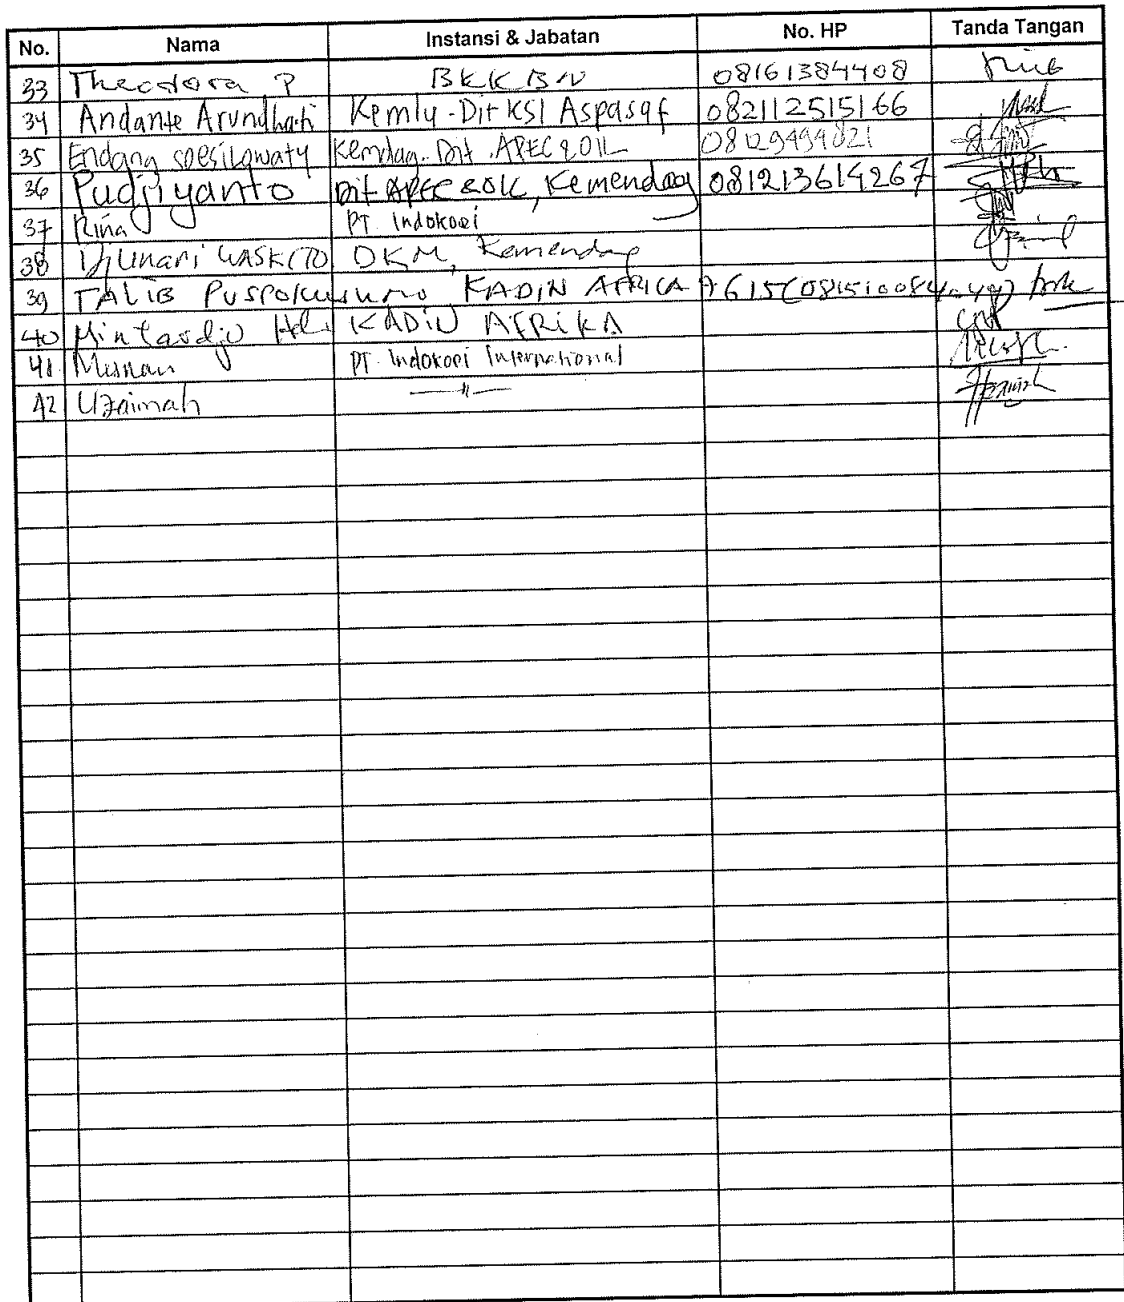 No. Nama Instansi & Jabatan No. HP Tanda Tangan
33 Theodora P BKKBN 08161384408
34 Andante Arundhati Kemlu - Dit KSI Aspasaf 082112515166
35 Endang Soesilowaty Kemdag. Dit. APEC & OIL 08129494821
36 Pudjiyanto Dit APEC & OIL, Kemendag 081213614267
37 Rina PT Indokoei
38 WASKITO DKM, Kemendag
39 TALIB Puspokusumo KADIN AFRICA
40 KADIN AFRIKA
41 Musnan PT. Indokoei International
42 Uzaimah -- 〃 --